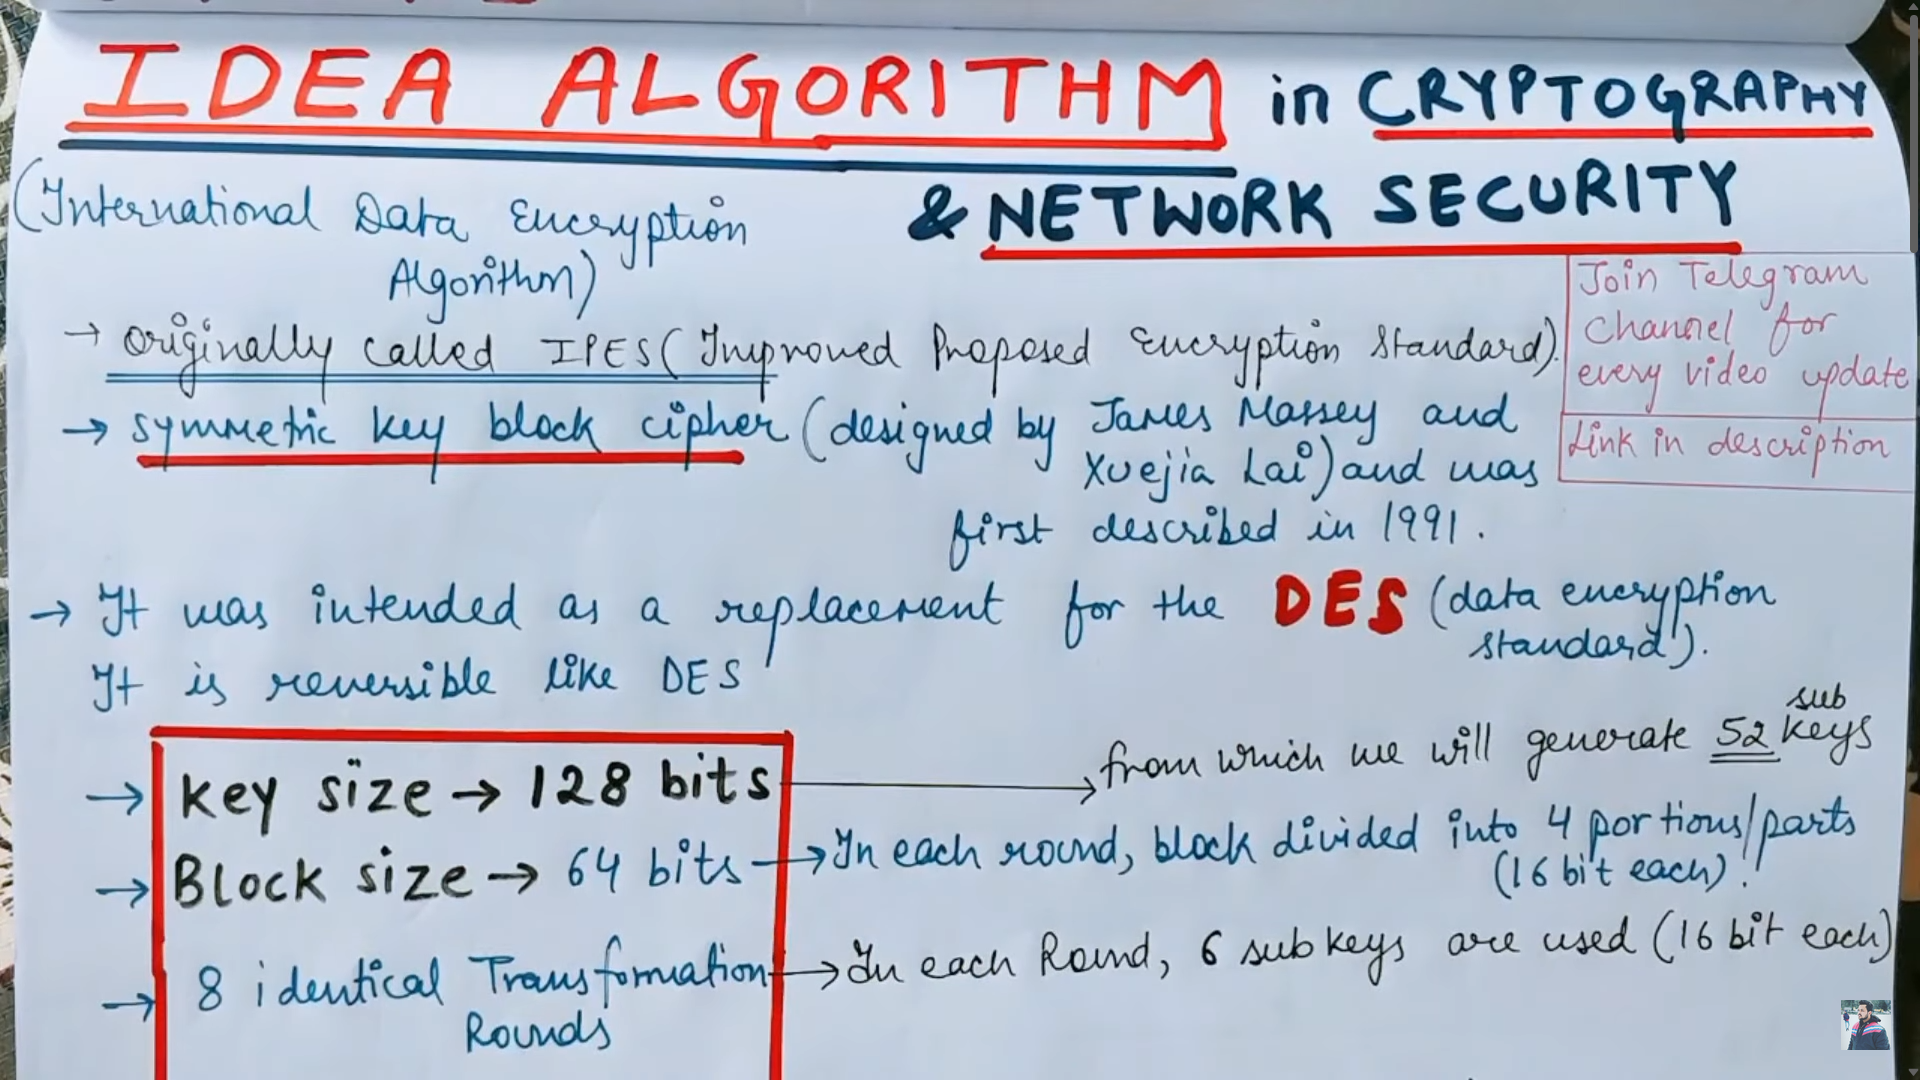 IDEA ALGORITHM in CRYPTOGRAPHY
& NETWORK SECURITY
(International Data Encryption
Algorithm)
Join Telegram
Channel for
every video update
Link in description
→ Originally called IPES (Improved Proposed Encryption Standard).
→ symmetric key block cipher (designed by James Massey and
Xuejia Lai) and was
first described in 1991.
→ It was intended as a replacement for the DES (data encryption
standard).
It is reversible like DES
→ Key size → 128 bits → from which we will generate 52 sub keys
→ Block size → 64 bits → In each round, block divided into 4 portions/parts
(16 bit each).
→ 8 identical Transformation → In each Round, 6 subkeys are used (16 bit each)
Rounds